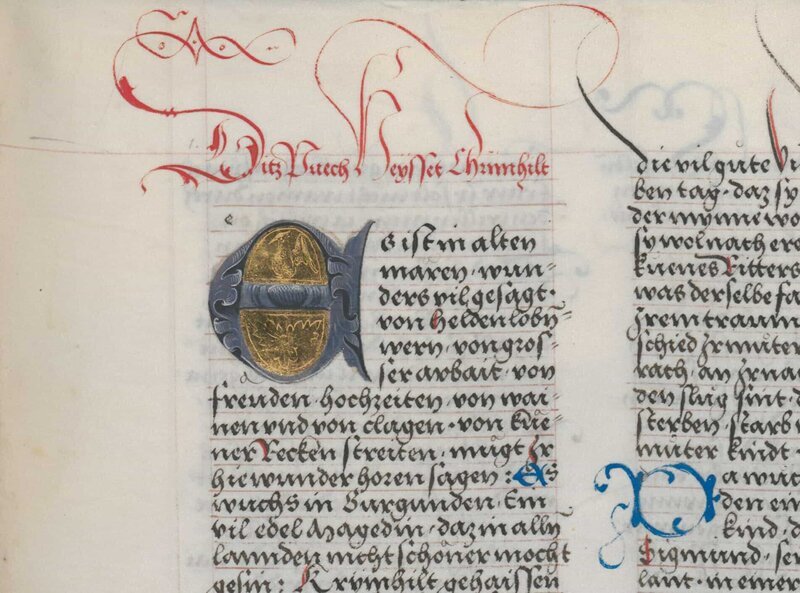 Ditz Puech Heysset Chrimhilt
e
Es ist in alten
mären · wun-
ders vil gesagt ·
von Helden lobn-
wern · von gros-
ser arbait · von
freuden · hochzeiten · von wai-
nen vnd von clagen · von küe-
ner Recken streiten · mügt Ir
hie wunder horen sagen : Es
wuchs in Burgunden · Ein
vil edel Magedin · daz in alln
lannden nicht schöner mocht
gesin : Krimhilt gehaissen
die vil güte
ben tag · daz sy
der mynne wo
sy wol nach ere
küenes Ritters
was derselbe fa
Irem traum
schied Ir müter
rach · an Ir na
den slug sint · d
sterben · starb
müter kindt ·
Da wuc
den ein
kind · d
Sigmund · sei
lant · in einer